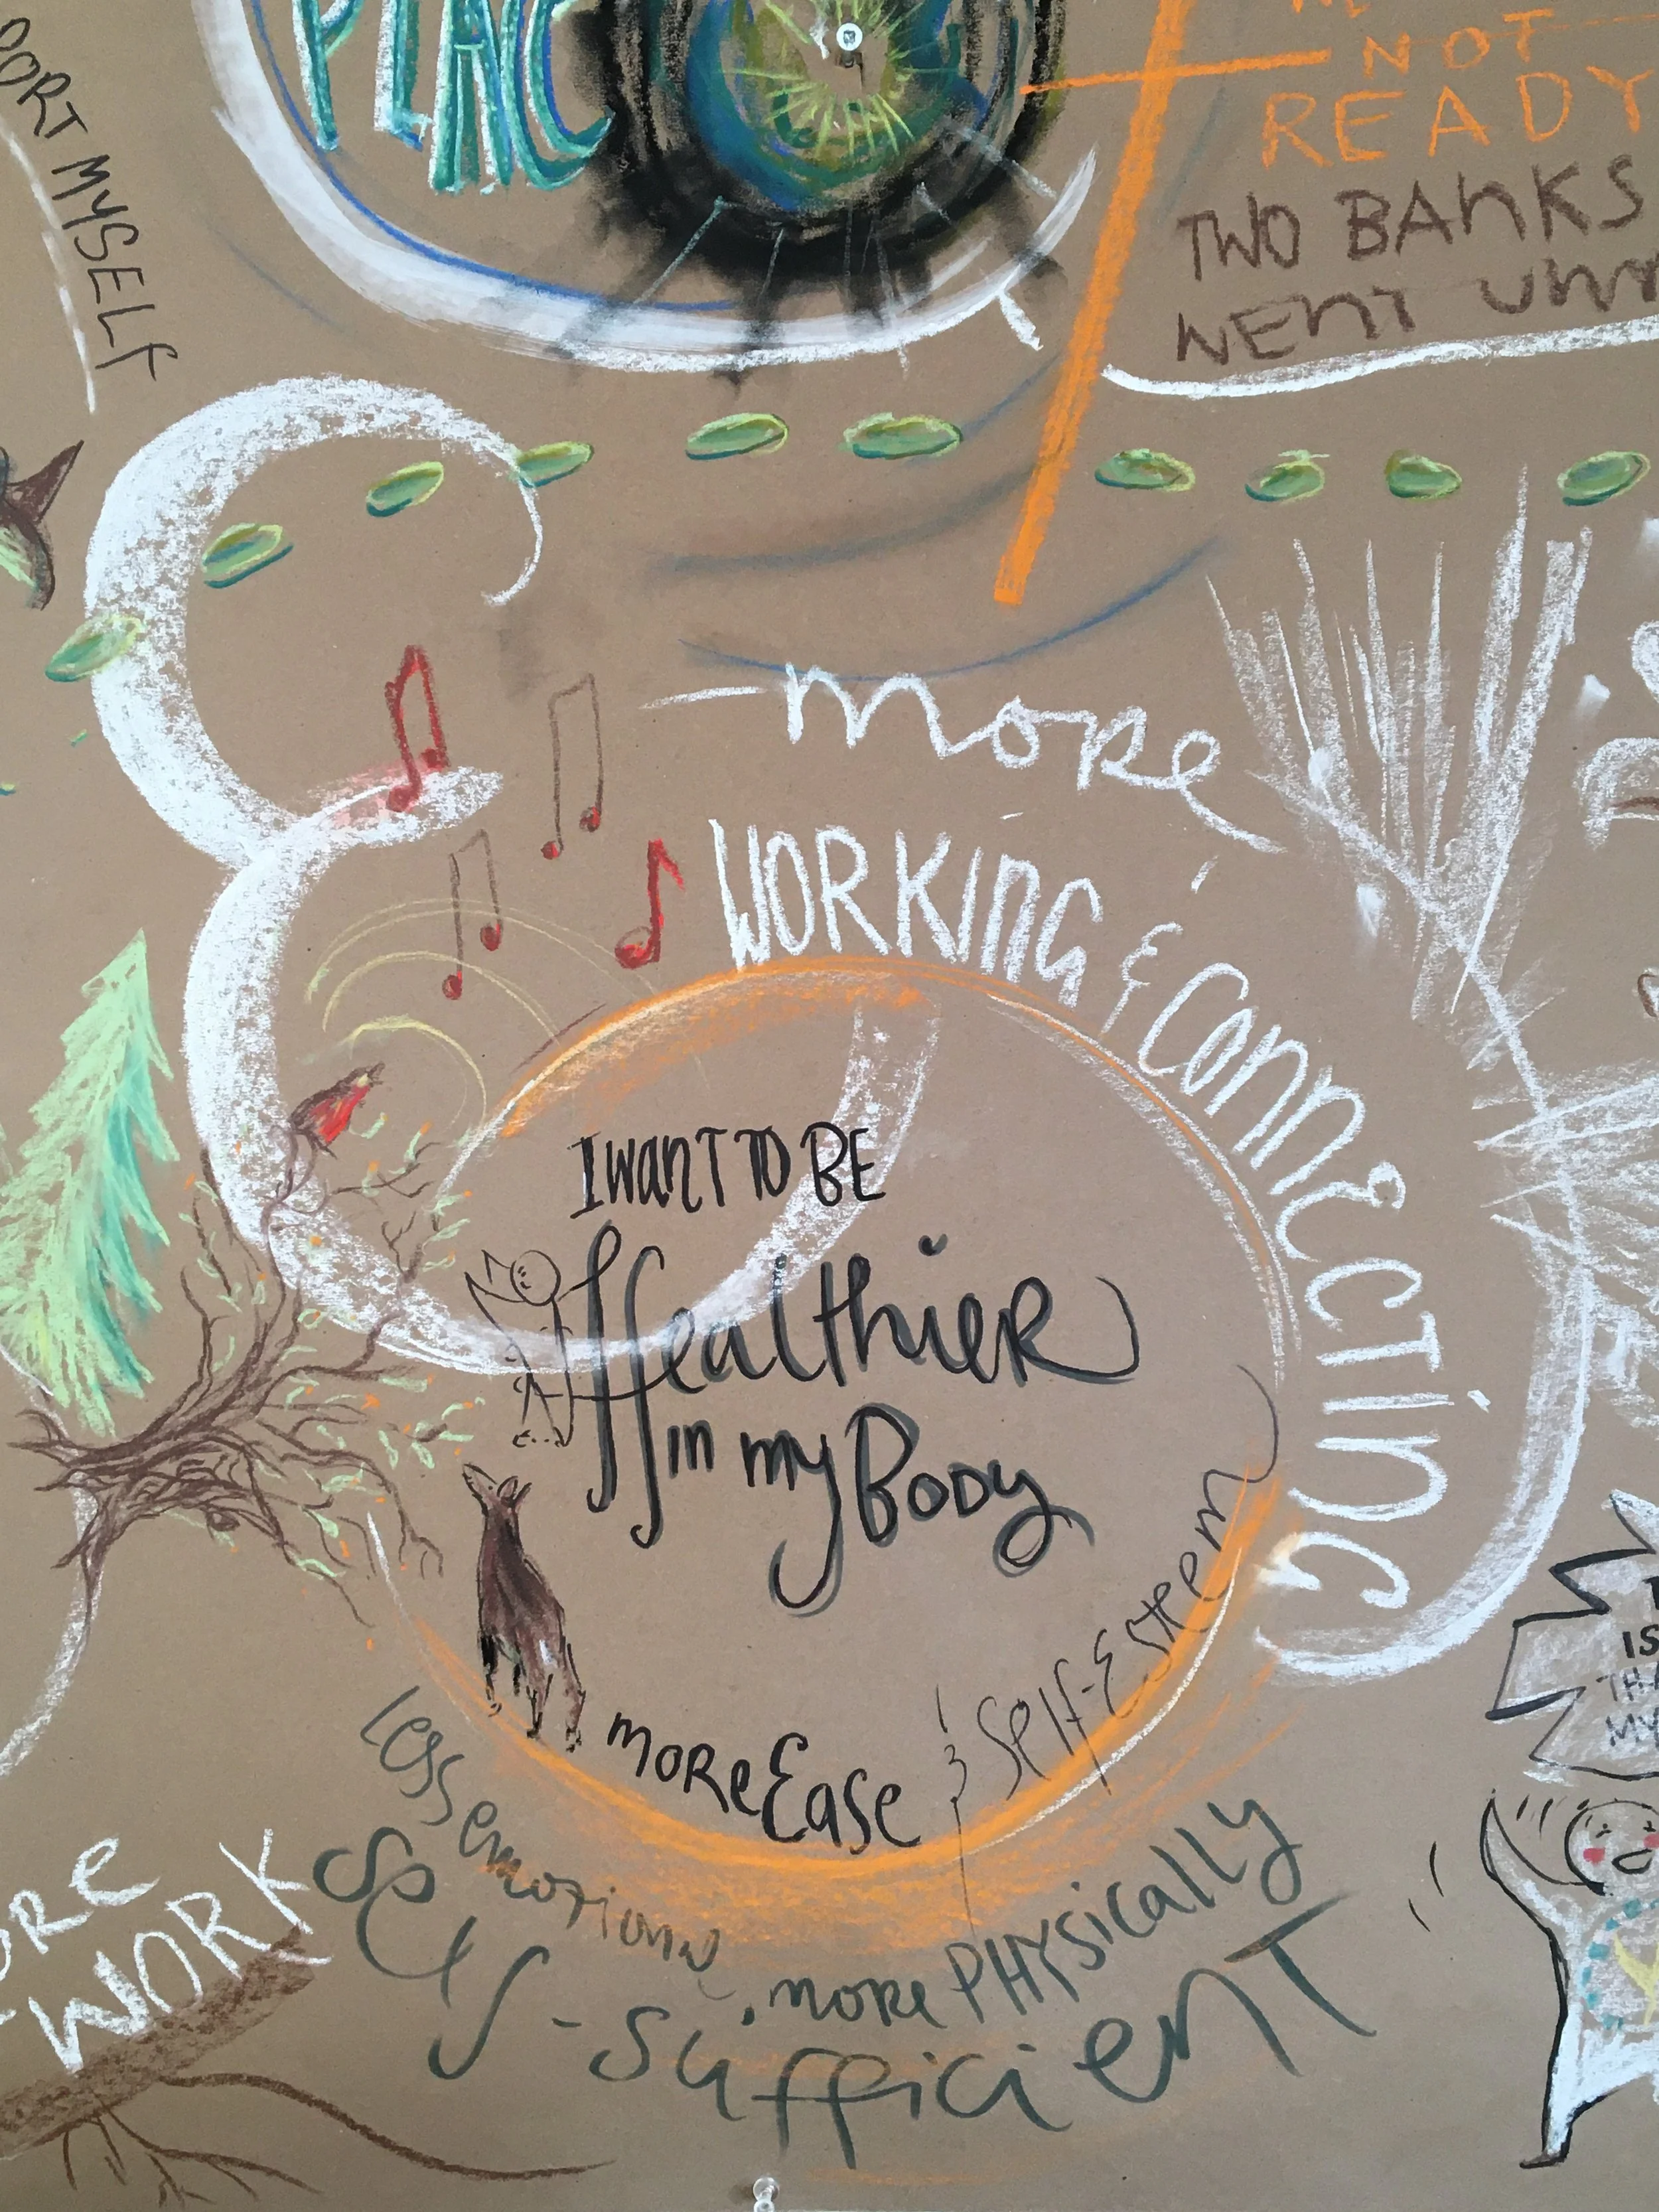 PLAC
NOT
READY
TWO BANKS
WENT
ORT MYSELF
more
WORKING & CONNECTING
I WANT TO BE
Healthier
in my Body
more Ease & Self-Esteem
less emotional
more PHYSically
Self-Sufficient
ORE
WORK
IS
THA
MY